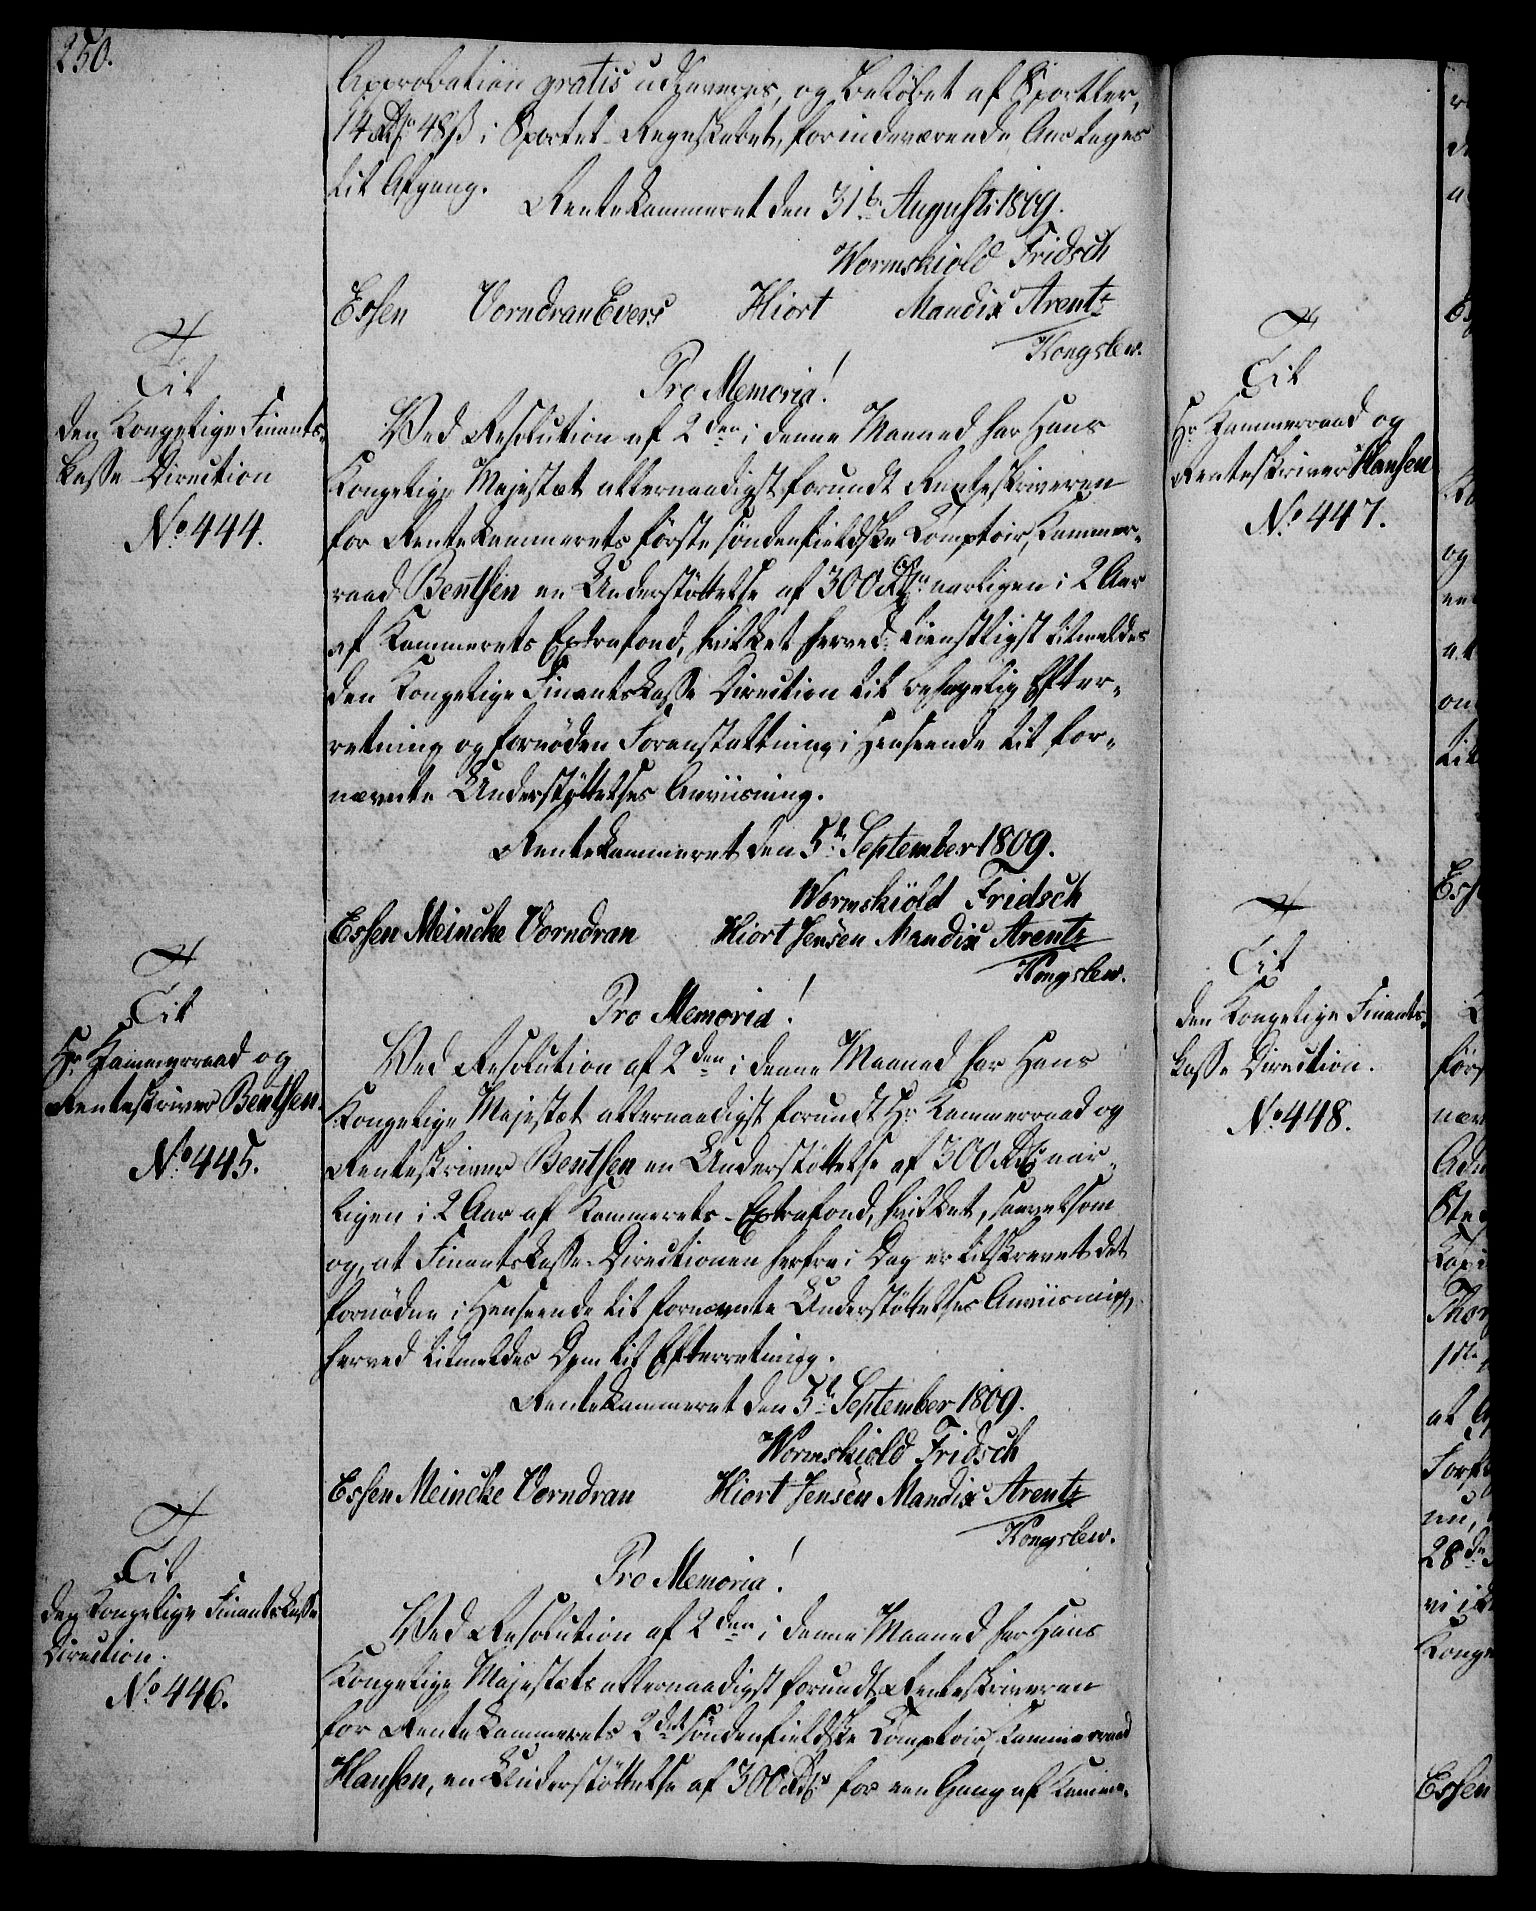 250.
Approbation gratis udfærdiges, og Beløbet af Sportler,
14 Rdr 48 ß i Sportel-Regnskabet, for indeværende Aar tages
til Afgang.
Rentekammeret den 31te Augusti 1809.
Wormskiold Fridsch
Essen Vorndran Evers Hiort Mandix Arentz
Kongslew.
Til
den Kongelige Finants-
kasse-Direction
No 444.
Pro Memoria!
Ved Resolution af 2den i denne Maaned har Hans
Kongelige Majestæt allernaadigst forundt Renteskriveren
for Rentekammerets første søndenfieldske Comptoir, Kammer-
raad Benthen en Understøttelse af 300 Rdr aarligen i 2 Aar
af Kammerets Extrafond, hvilket herved tienstligst tilmeldes
den Kongelige Finantskasse Direction til behagelig Efter-
retning og fornøden Foranstaltning i Henseende til for-
nævnte Understøttelses Anviisning.
Rentekammeret den 5te September 1809.
Wormskiöld Fridsch
Essen Meincke Vorndran Hiort Jensen Mandix Arentz
Kongslew.
Til
Hr Kammerraad og
Renteskriver Benthen.
No 445.
Pro Memoria!
Ved Resolution af 2den i denne Maaned har Hans
Kongelige Majestæt allernaadigst forundt Hr Kammerraad og
Renteskriver Benthen en Understøttelse af 300 Rdr aar-
ligen i 2 Aar af Kammerets-Extrafond, hvilket, saavelsom
og, at Finantskasse-Directionen herfra i Dag er tilskrevet det
fornødne i Henseende til fornævnte Understøttelses Anviisning,
herved tilmeldes Dem til Efterretning.
Rentekammeret den 5te September 1809.
Wormskiold Fridsch
Essen Meincke Vorndran Hiort Jensen Mandix Arentz
Kongslew.
Til
den Kongelige Finantskasse
Direction.
No 446.
Pro Memoria!
Ved Resolution af 2den i denne Maaned har Hans
Kongelige Majestæt allernaadigst forundt Renteskriveren
for Rentekammerets 2det søndenfieldske Comptoir, Kammerraad
Hansen, en Understøttelse af 300 Rdr for een Gang af Kamme-
Til
Hr Kammerraad og
Renteskriver Hansen
No 447.
Til
den Kongelige Finants-
kasse Direction.
No 448.